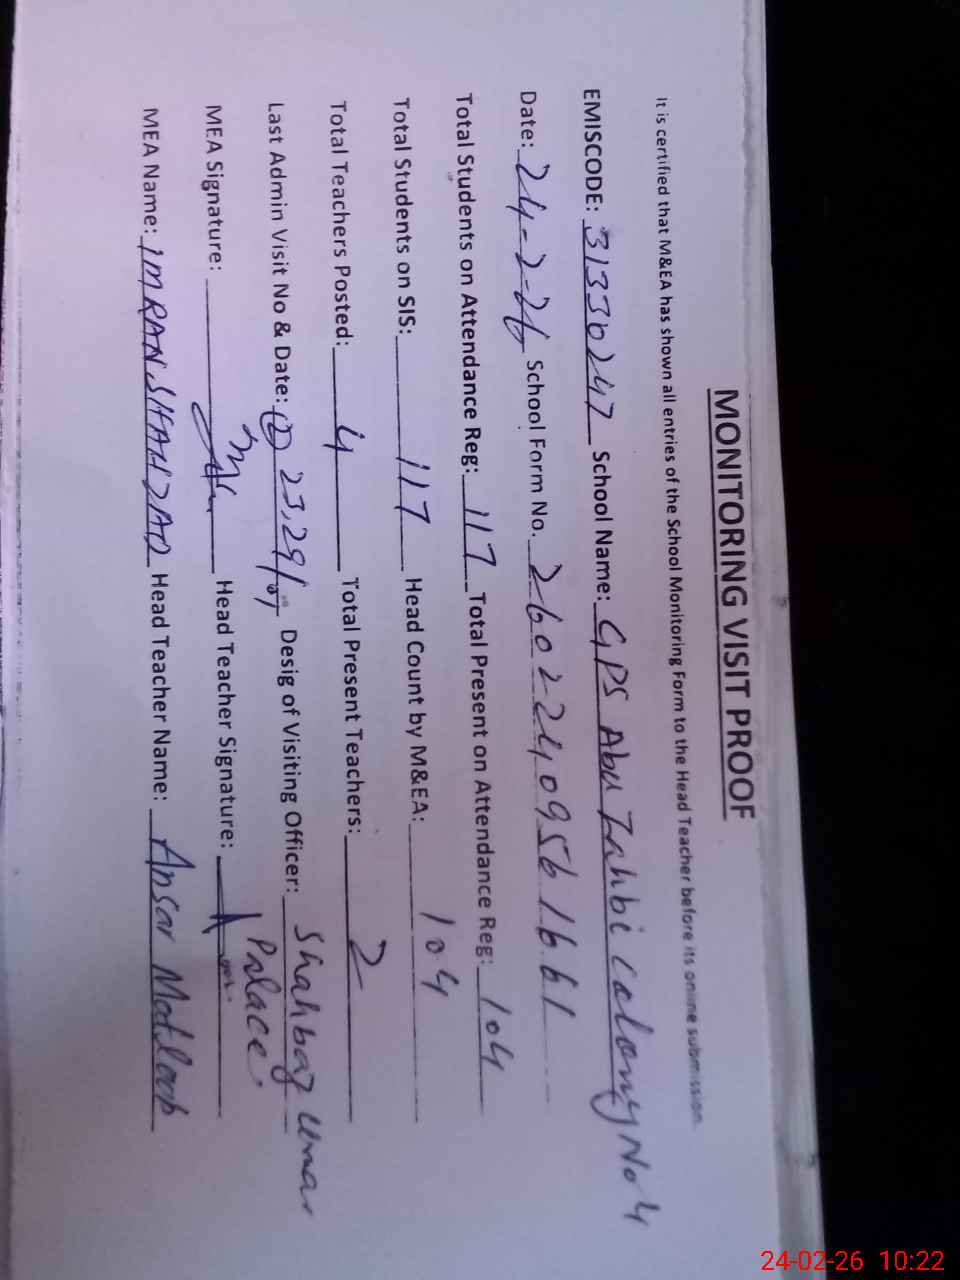 MONITORING VISIT PROOF
It is certified that M&EA has shown all entries of the School Monitoring Form to the Head Teacher before its online submission.
EMISCODE: 31330247 School Name: GPS Abu Zahbi Colony No 4
Date: 24-2-26 School Form No. 26022409561661
Total Students on Attendance Reg: 117 Total Present on Attendance Reg: 104
Total Students on SIS: 117 Head Count by M&EA: 104
Total Teachers Posted: 4 Total Present Teachers: 2
Last Admin Visit No & Date: (2) 23,29/ Desig of Visiting Officer: Shahbaz Umar
Palace.
MEA Signature: Head Teacher Signature:
MEA Name: IMRAN SHAHZAD Head Teacher Name: Ansar Matloob
24-02-26 10:22